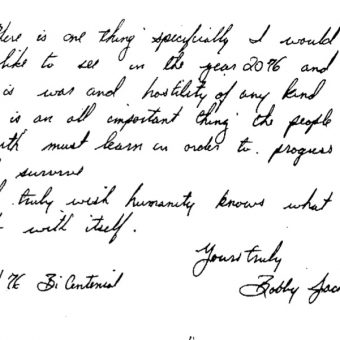 There is one thing specifically I would
like to see in the year 2076 and
is was and hostility of any kind
is an all important thing the people
must learn in order to. progress
survive
truly wish humanity knows what
with itself.
Yours truly
76 BiCentenial
Bobby